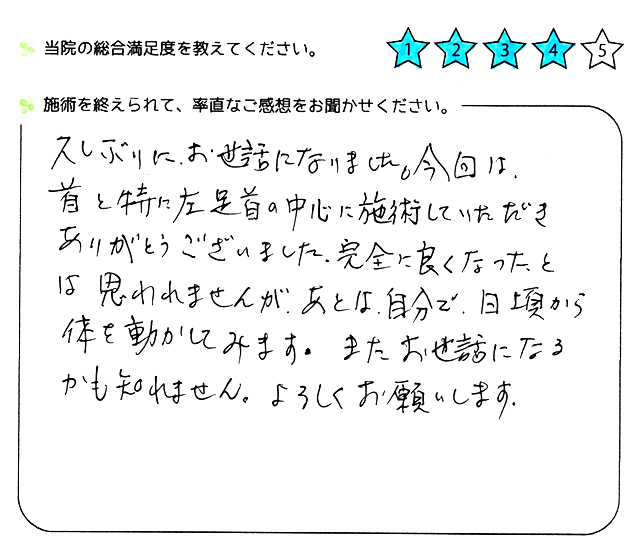 当院の総合満足度を教えてください。 1 2 3 4 5
施術を終えられて、率直なご感想をお聞かせください。
久しぶりに、お世話になりました。今回は、
首と特に左足首の中心に施術していただき
ありがとうございました。完全に良くなったと
は思われませんが、あとは、自分で、日頃から
体を動かしてみます。またお世話になる
かも知れません。よろしくお願いします。